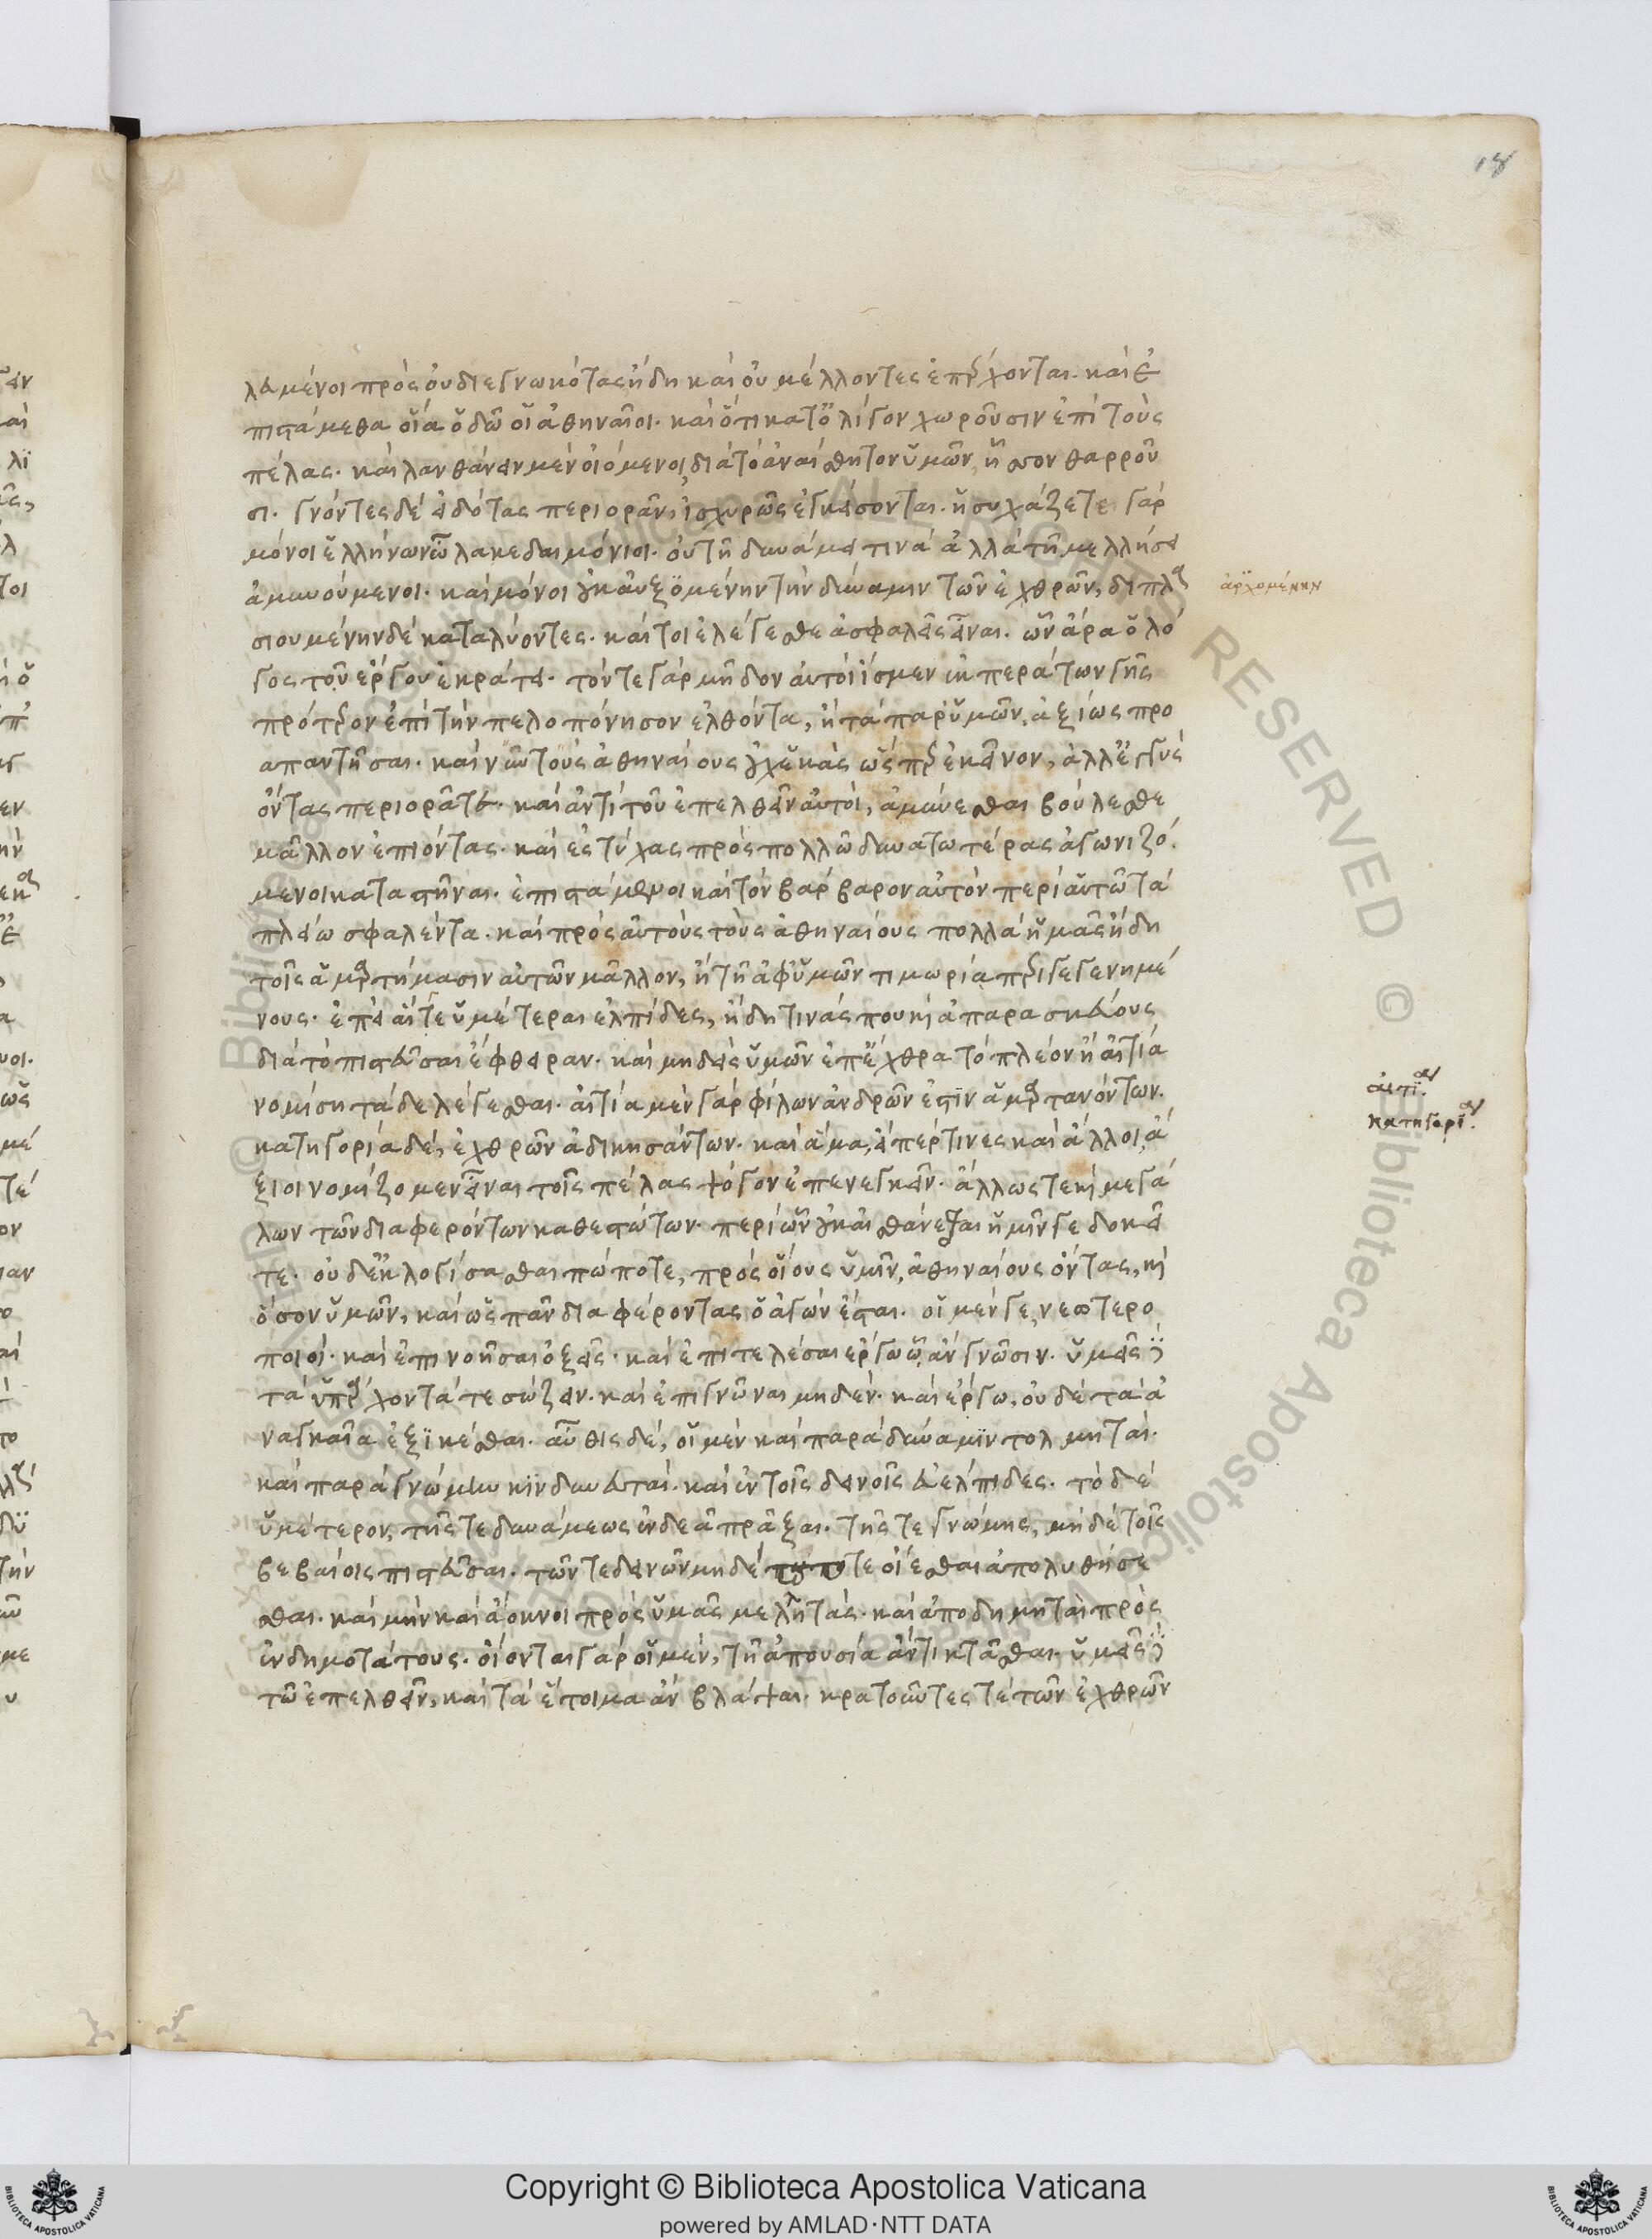 18
λευμένοι πρὸς οὐ διεγνωκότας ἤδη καὶ οὐ μέλλοντες ἐπέρχονται. καὶ ἐ
πιστάμεθα οἵα ὁδῶ οἱ ἀθηναῖοι. καὶ ὅτι κατ' ὀλίγον χωροῦσιν ἐπὶ τοὺς
πέλας. καὶ λανθάνειν μὲν οἰόμενοι διὰ τὸ ἀναίσθητον ὑμῶν, ἧσσον θαρροῦ
σι. γνόντες δὲ εἰδότας περιορᾶν, ἰσχυρῶς ἐγκείσονται. ἡσυχάζετε γὰρ
μόνοι ἑλλήνων ὦ λακεδαιμόνιοι. οὐ τῆ δυνάμει τινὰ ἀλλὰ τῆ μελλήσει
ἀμυνούμενοι. καὶ μόνοι οὐκ αὐξομένην τὴν δύναμιν τῶν ἐχθρῶν, διπλα
ἀρχομένην
σιουμένην δὲ καταλύοντες. καίτοι ἐλέγεσθε ἀσφαλεῖς εἶναι. ὧν ἄρα ὁ λό
γος τοῦ ἔργου ἐκράτει. τόν τε γὰρ μῆδον αὐτοὶ ἴσμεν ἐκ περάτων γῆς
πρότερον ἐπὶ τὴν πελοπόνησον ἐλθόντα, ἢ τὰ παρ' ὑμῶν ἀξίως προ
απαντῆσαι. καὶ νῦν τοὺς ἀθηναίους οὐχ ἑκὰς ὥσπερ ἐκεῖνον, ἀλλ' ἐγγὺς
ὄντας περιορᾶτε. καὶ ἀντὶ τοῦ ἐπελθεῖν αὐτοί, ἀμύνεσθαι βούλεσθε
μᾶλλον ἐπιόντας. καὶ ἐς τύχας πρὸς πολλῶ δυνατωτέρας ἀγωνιζό
μενοι καταστῆναι. ἐπιστάμενοι καὶ τὸν βάρβαρον αὐτὸν περὶ αὑτῶ τὰ
πλείω σφαλέντα. καὶ πρὸς αὐτοὺς τοὺς ἀθηναίους πολλὰ ἡμᾶς ἤδη
τοῖς ἁμαρτήμασιν αὐτῶν μᾶλλον, ἢ τῆ ἀφ' ὑμῶν τιμωρία περιγεγενημέ
νους. ἐπεὶ αἵ γε ὑμέτεραι ἐλπίδες, ἤδη τινάς που καὶ ἀπαρασκεύους
διὰ τὸ πιστεῦσαι ἔφθειραν. καὶ μηδεὶς ὑμῶν ἐπ' ἔχθρα τὸ πλέον ἢ αἰτία
νομίση τάδε λέγεσθαι. αἰτία μὲν γὰρ φίλων ἀνδρῶν ἐστὶν ἁμαρτανόντων.
αἰτίαν.
κατηγορίαν.
κατηγορία δέ, ἐχθρῶν ἀδικησάντων. καὶ ἅμα, εἴπερ τινες καὶ ἄλλοι, ἄ
ξιοι νομίζομεν εἶναι τοῖς πέλας ψόγον ἐπενεγκεῖν. ἄλλως τε καὶ μεγά
λων τῶν διαφερόντων καθεστώτων. περὶ ὧν οὐκ αἰσθάνεσθαι ἡμῖν γε δοκεῖ
τε. οὐδ' ἐκλογίσασθαι πώποτε, πρὸς οἵους ὑμῖν, ἀθηναίους ὄντας, καὶ
ὅσον ὑμῶν, καὶ ὡς πᾶν διαφέροντας ὁ ἀγὼν ἔσται. οἱ μέν γε, νεωτερο
ποιοί. καὶ ἐπινοῆσαι ὀξεῖς. καὶ ἐπιτελέσαι ἔργω ὧ ἂν γνῶσιν. ὑμεῖς δὲ
τὰ ὑπάρχοντά τε σώζειν. καὶ ἐπιγνῶναι μηδέν. καὶ ἔργω, οὐδὲ τἀ ἀ
ναγκαῖα ἐξικέσθαι. αὖθις δέ, οἱ μὲν καὶ παρὰ δύναμιν τολμηταί.
καὶ παρὰ γνώμην κινδυνευταί. καὶ ἐν τοῖς δεινοῖς εὐέλπιδες. τὸ δὲ
ὑμέτερον, τῆς τε δυνάμεως ἐνδεᾶ πρᾶξαι. τῆς τε γνώμης, μηδὲ τοῖς
βεβαίοις πιστεῦσαι. τῶν τε δεινῶν μηδέποτε οἴεσθαι ἀπολυθήσε
σθαι. καὶ μὴν καὶ ἄοκνοι πρὸς ὑμᾶς μελλητάς. καὶ ἀποδημηταὶ πρὸς
ἐνδημοτάτους. οἴονται γὰρ οἱ μέν, τῆ ἀπουσία ἄν τι κτᾶσθαι. ὑμεῖς δὲ
τῶ ἐπελθεῖν, καὶ τὰ ἕτοιμα ἂν βλάψαι. κρατοῦντές τε τῶν ἐχθρῶν
Copyright © Biblioteca Apostolica Vaticana
powered by AMLAD·NTT DATA